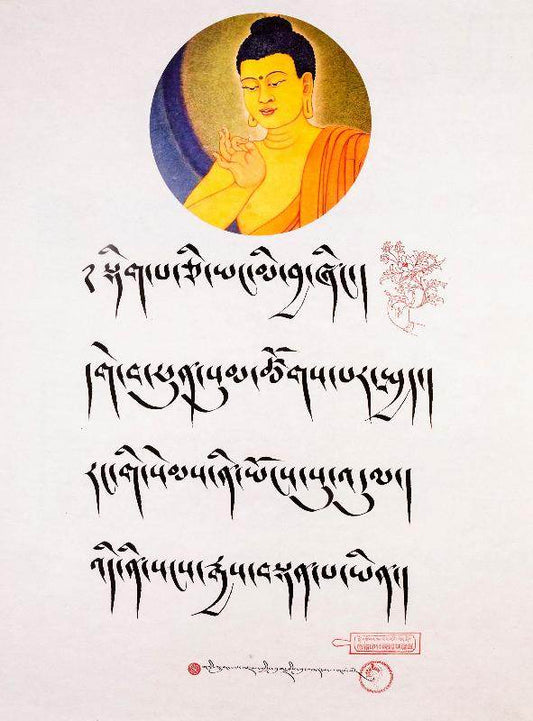 སྡིག་པ་ཅི་ཡང་མི་བྱ་ཞིང་། །
།དགེ་བ་ཕུན་སུམ་ཚོགས་པར་སྤྱད། །
རང་གི་སེམས་ནི་ཡོངས་སུ་འདུལ། །
འདི་ནི་སངས་རྒྱས་བསྟན་པ་ཡིན། །